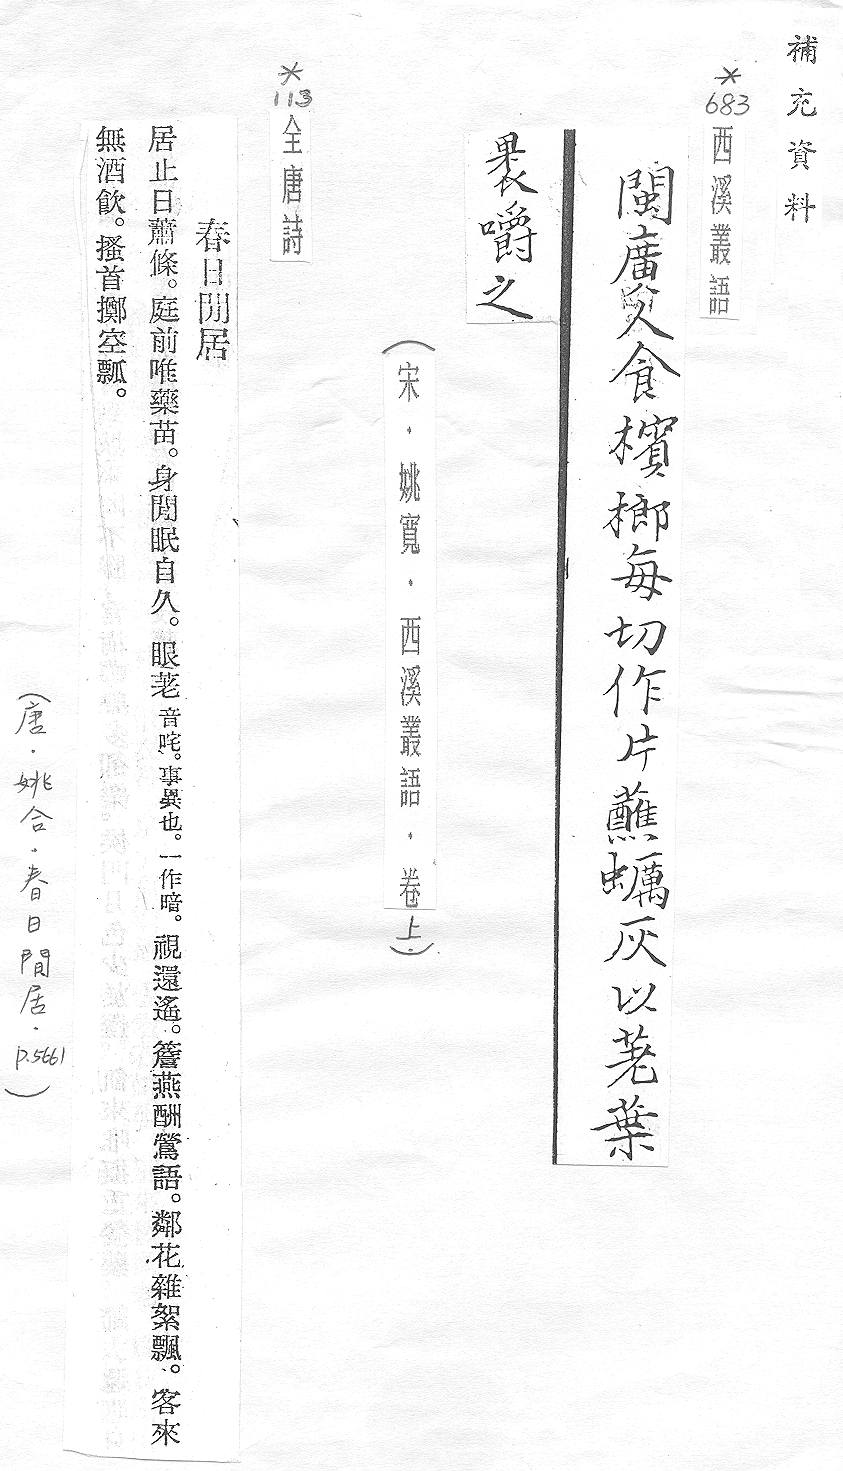 補充資料
*
683
西溪叢語
閩廣人食檳榔每切作片蘸蠣灰以荖葉
褁嚼之
(宋·姚寬·西溪叢語·卷上·)
*
113
全唐詩
春日閒居
居止日蕭條。庭前唯藥苗。身閒眠自久。眼荖音咤。事異也。一作暗。視還遙。簷燕酬鶯語。鄰花雜絮飄。客來
無酒飲。搔首擲空瓢。
(唐·姚合·春日閒居·p.5661)